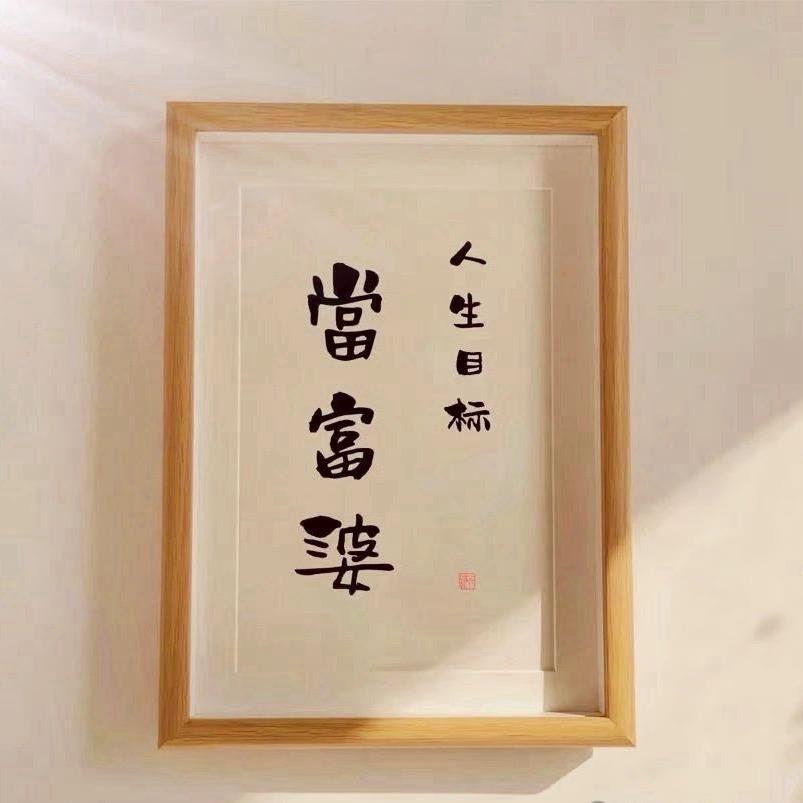 人生目标
當富婆